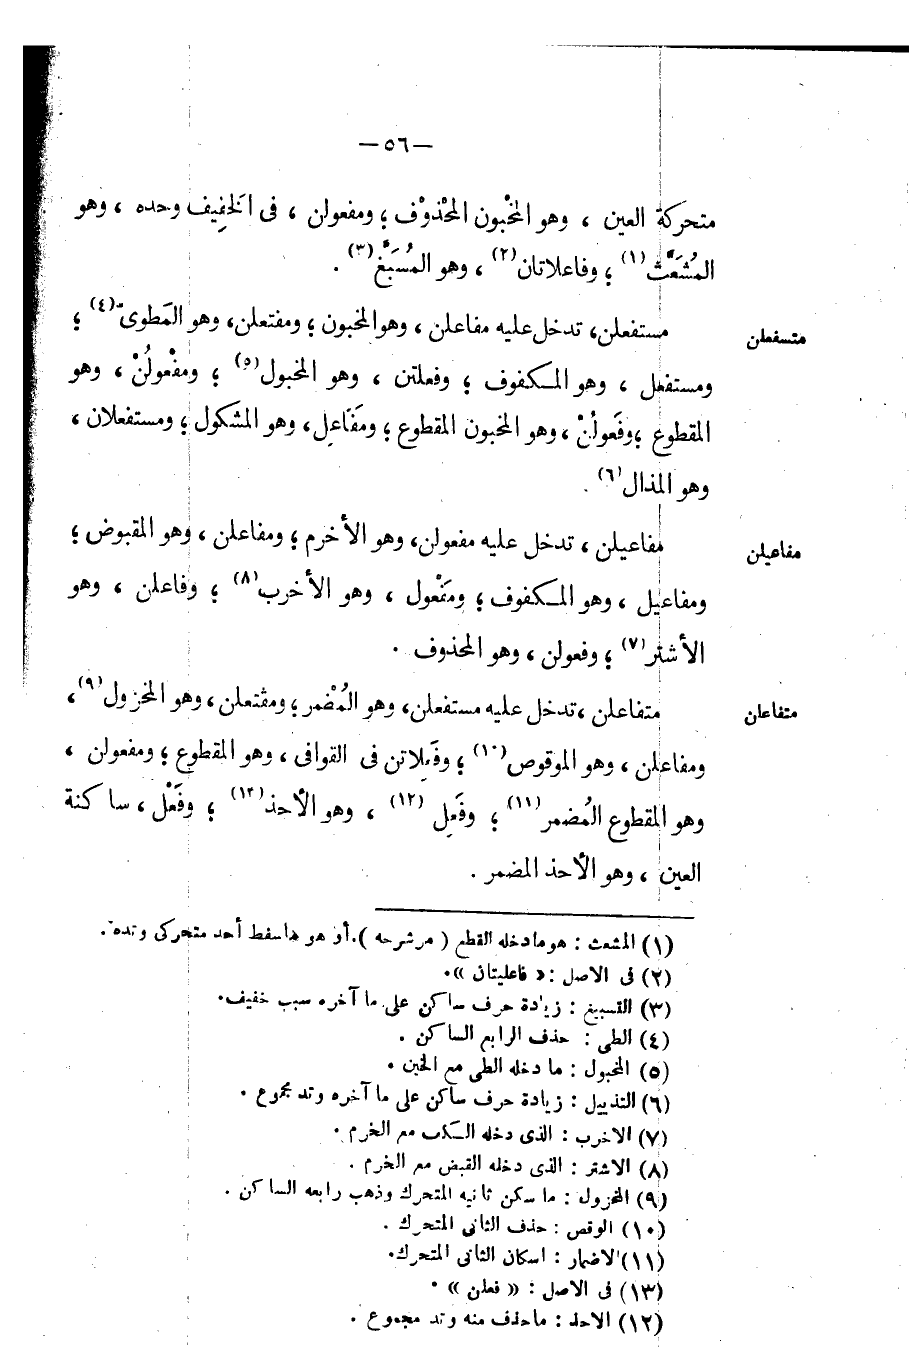 —٥٦—
متحركة العين ، وهو المخْبون المحْذوْف ؛ ومفعولن ، فى الخفِيف وحده ، وهو
المُشَعَّث(١) ؛ وفاعلاتان(٢) ، وهو المُسَبَّغ(٣) .
متسفعلن
مستفعلن، تدخل عليه مفاعلن ، وهو المخبون ؛ ومفتعلن، وهو المَطوى(٤) ؛
ومستفعل ، وهو المكفوف ؛ وفعلتن ، وهو المخبول(٥) ؛ ومفْعولُنْ ، وهو
المقطوع ؛ وفَعولُنْ ، وهو المخبون المقطوع ؛ ومَفَاعِل، وهو المشكول ؛ ومستفعلان ،
وهو المذال(٦) .
مفاعيلن
مفاعيلن ، تدخل عليه مفعولن، وهو الأخرم ؛ ومفاعلن ، وهو المقبوض ؛
ومفاعيل ، وهو المكفوف ؛ ومَفْعول ، وهو الأخرب(٨) ؛ وفاعلن ، وهو
الأشتر(٧) ؛ وفعولن ، وهو المحذوف .
متفاعان
متفاعلن ، تدخل عليه مستفعلن، وهو المُضْمر ؛ ومفتعلن ، وهو المخزول(٩) ،
ومفاعلن ، وهو الموقوص(١٠) ؛ وفَعِلاتن فى القوافى ، وهو المقطوع ؛ ومفعولن ،
وهو المقطوع المُضمر(١١) ؛ وفَعِل (١٢) ، وهو الأحذ(١٣) ؛ وفَعْل ، ساكنة
العين ، وهو الأحذ المضمر .
(١) المشعث : هو مادخله القطع ( مر شرحه ). أو هو ماسقط أحد متحركى وتده .
(٢) فى الاصل : « فاعليتان » .
(٣) التسبيغ : زيادة حرف ساكن على ما آخره سبب خفيف .
(٤) الطى : حذف الرابع الساكن .
(٥) المخبول : ما دخله الطى مع الخبن .
(٦) التذييل : زيادة حرف ساكن على ما آخره وتد مجموع .
(٧) الاخرب : الذى دخله الكف مع الخرم .
(٨) الاشتر : الذى دخله القبض مع الخرم .
(٩) المخزول : ما سكن ثانيه المتحرك وذهب رابعه الساكن .
(١٠) الوقص : حذف الثانى المتحرك .
(١١) الاضمار : اسكان الثانى المتحرك .
(١٣) فى الاصل : « فعلن » .
(١٢) الاحذ : ماحذف منه وتد مجموع .